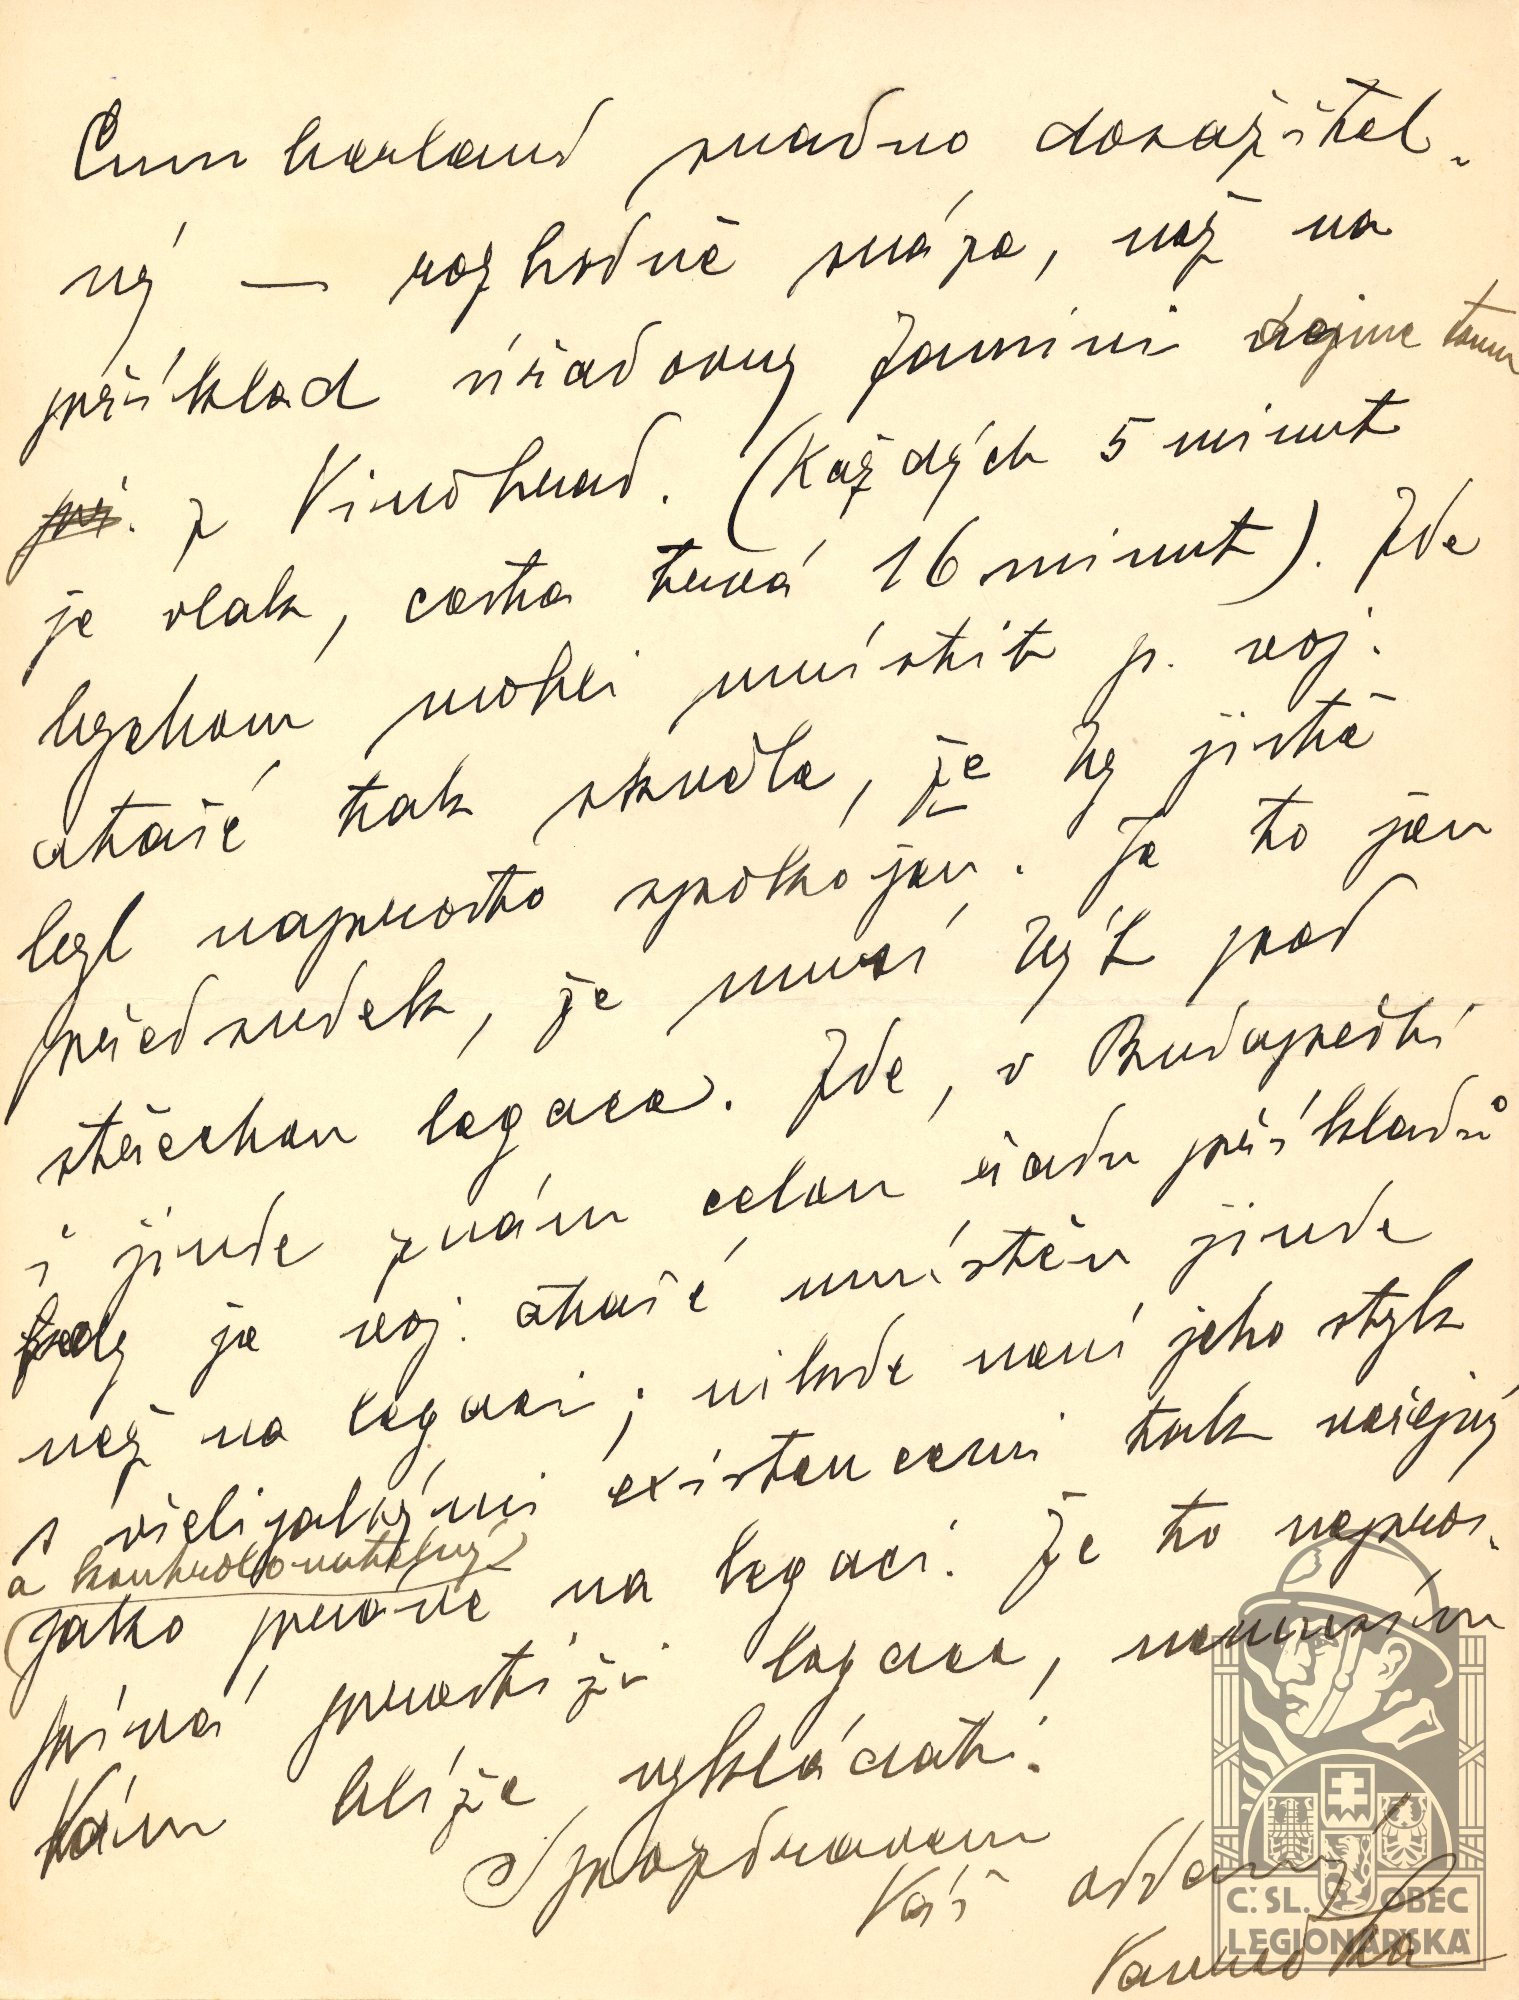 Cumberland snadno dosažitel-
ný — rozhodně snáze, než na
příklad úřadovny zamini dejme tomu
z Vinohrad. (Každých 5 minut
je vlak, cesta trvá 16 minut). Zde
bychom mohli umístit p. voj.
atašé tak skvěle, že by jistě
byl naprosto spokojen. Je to jen
předsudek, že musí být pod
střechou legace. Zde, v Budapešti
i jinde znám celou řadu příkladů
kdy je voj. atašé umístěn jinde
než na legaci; nikde není jeho styk
s všelijakými existencemi tak veřejný
a kontrolovatelný
jako právě na legaci. Že to nepros-
pívá prestiži legace, nemusím
Vám blíže vykládati.
S pozdravem
Váš oddaný
Č.SL. OBEC
LEGIONÁŘSKÁ